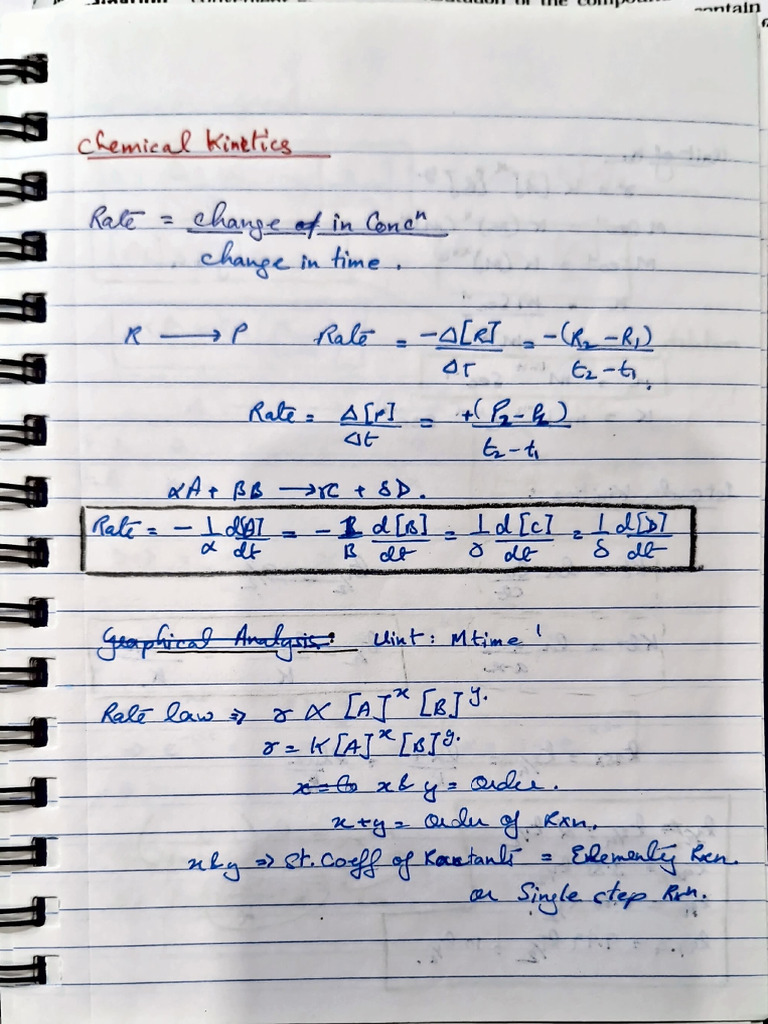 contain
Chemical Kinetics
Rate = change of in Concⁿ / change in time .
R ⟶ P Rate = -Δ[R] / Δt = -(R₂ - R₁) / t₂ - t₁
Rate = Δ[P] / Δt = +(P₂ - P₁) / t₂ - t₁
αA + βB ⟶ γC + δD .
Rate = - 1/α d[A]/dt = - 1/β d[B]/dt = 1/γ d[C]/dt = 1/δ d[D]/dt
Graphical Analysis: Uint : M time⁻¹
Rate law ⇒ r ∝ [A]ˣ [B]ʸ.
r = K[A]ˣ [B]ʸ.
x & y = Order .
x + y = Order of Rxn.
x & y ⇒ St. Coeff of Reactants = Elementy Rxn.
or Single step Rxn.